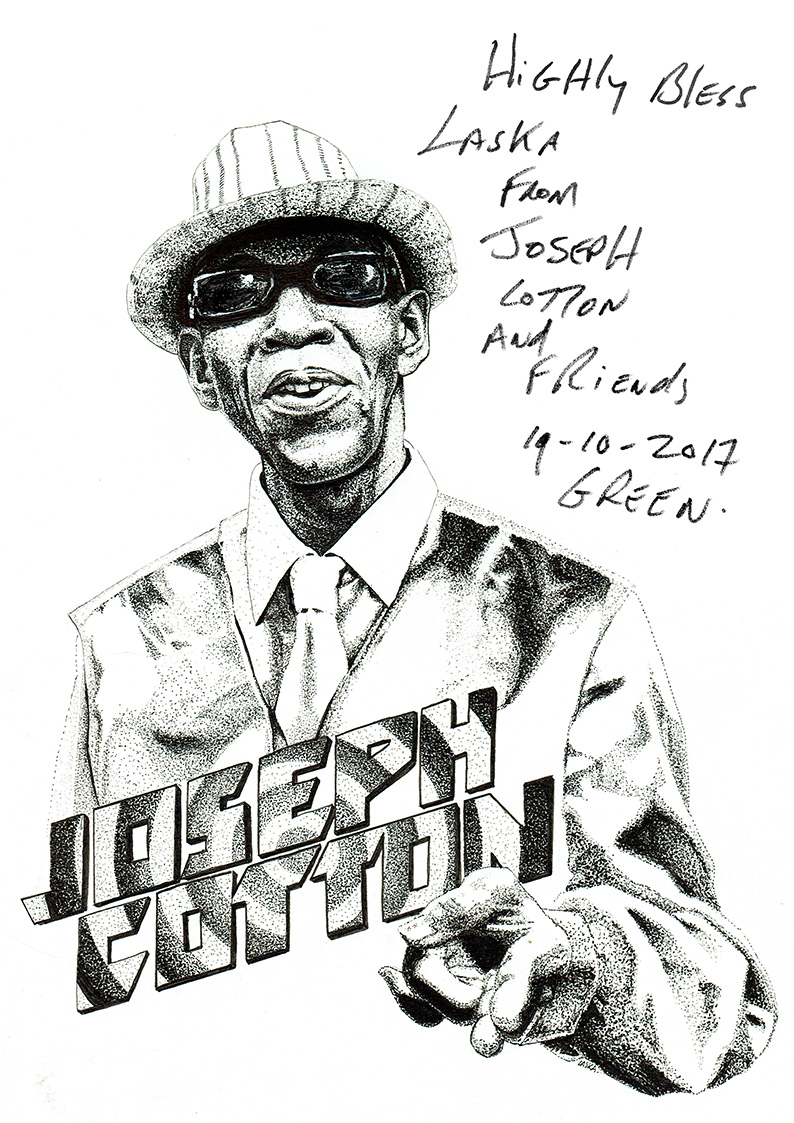 HiGHly BLESS
LASKA
FROM
JOSEPH
COTTON
AND
FRiENds
19-10-2017
GREEN.
JOSEPH
COTTON